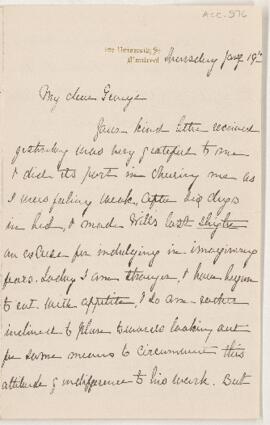 ACC. 576
University St
Montreal
Thursday Jany 19th
My dear George
Your kind letter received
yesterday was very grateful to me
& did its part in cheering me as
I was feeling weak, after six days
in bed, & made Will's last
an excuse for indulging in imaginary
fears. Today I am stronger, & have begun
to eat with appetite, & so am rather
inclined to towards looking out
for some means to circumvent this
attitude of indifference to his work. But